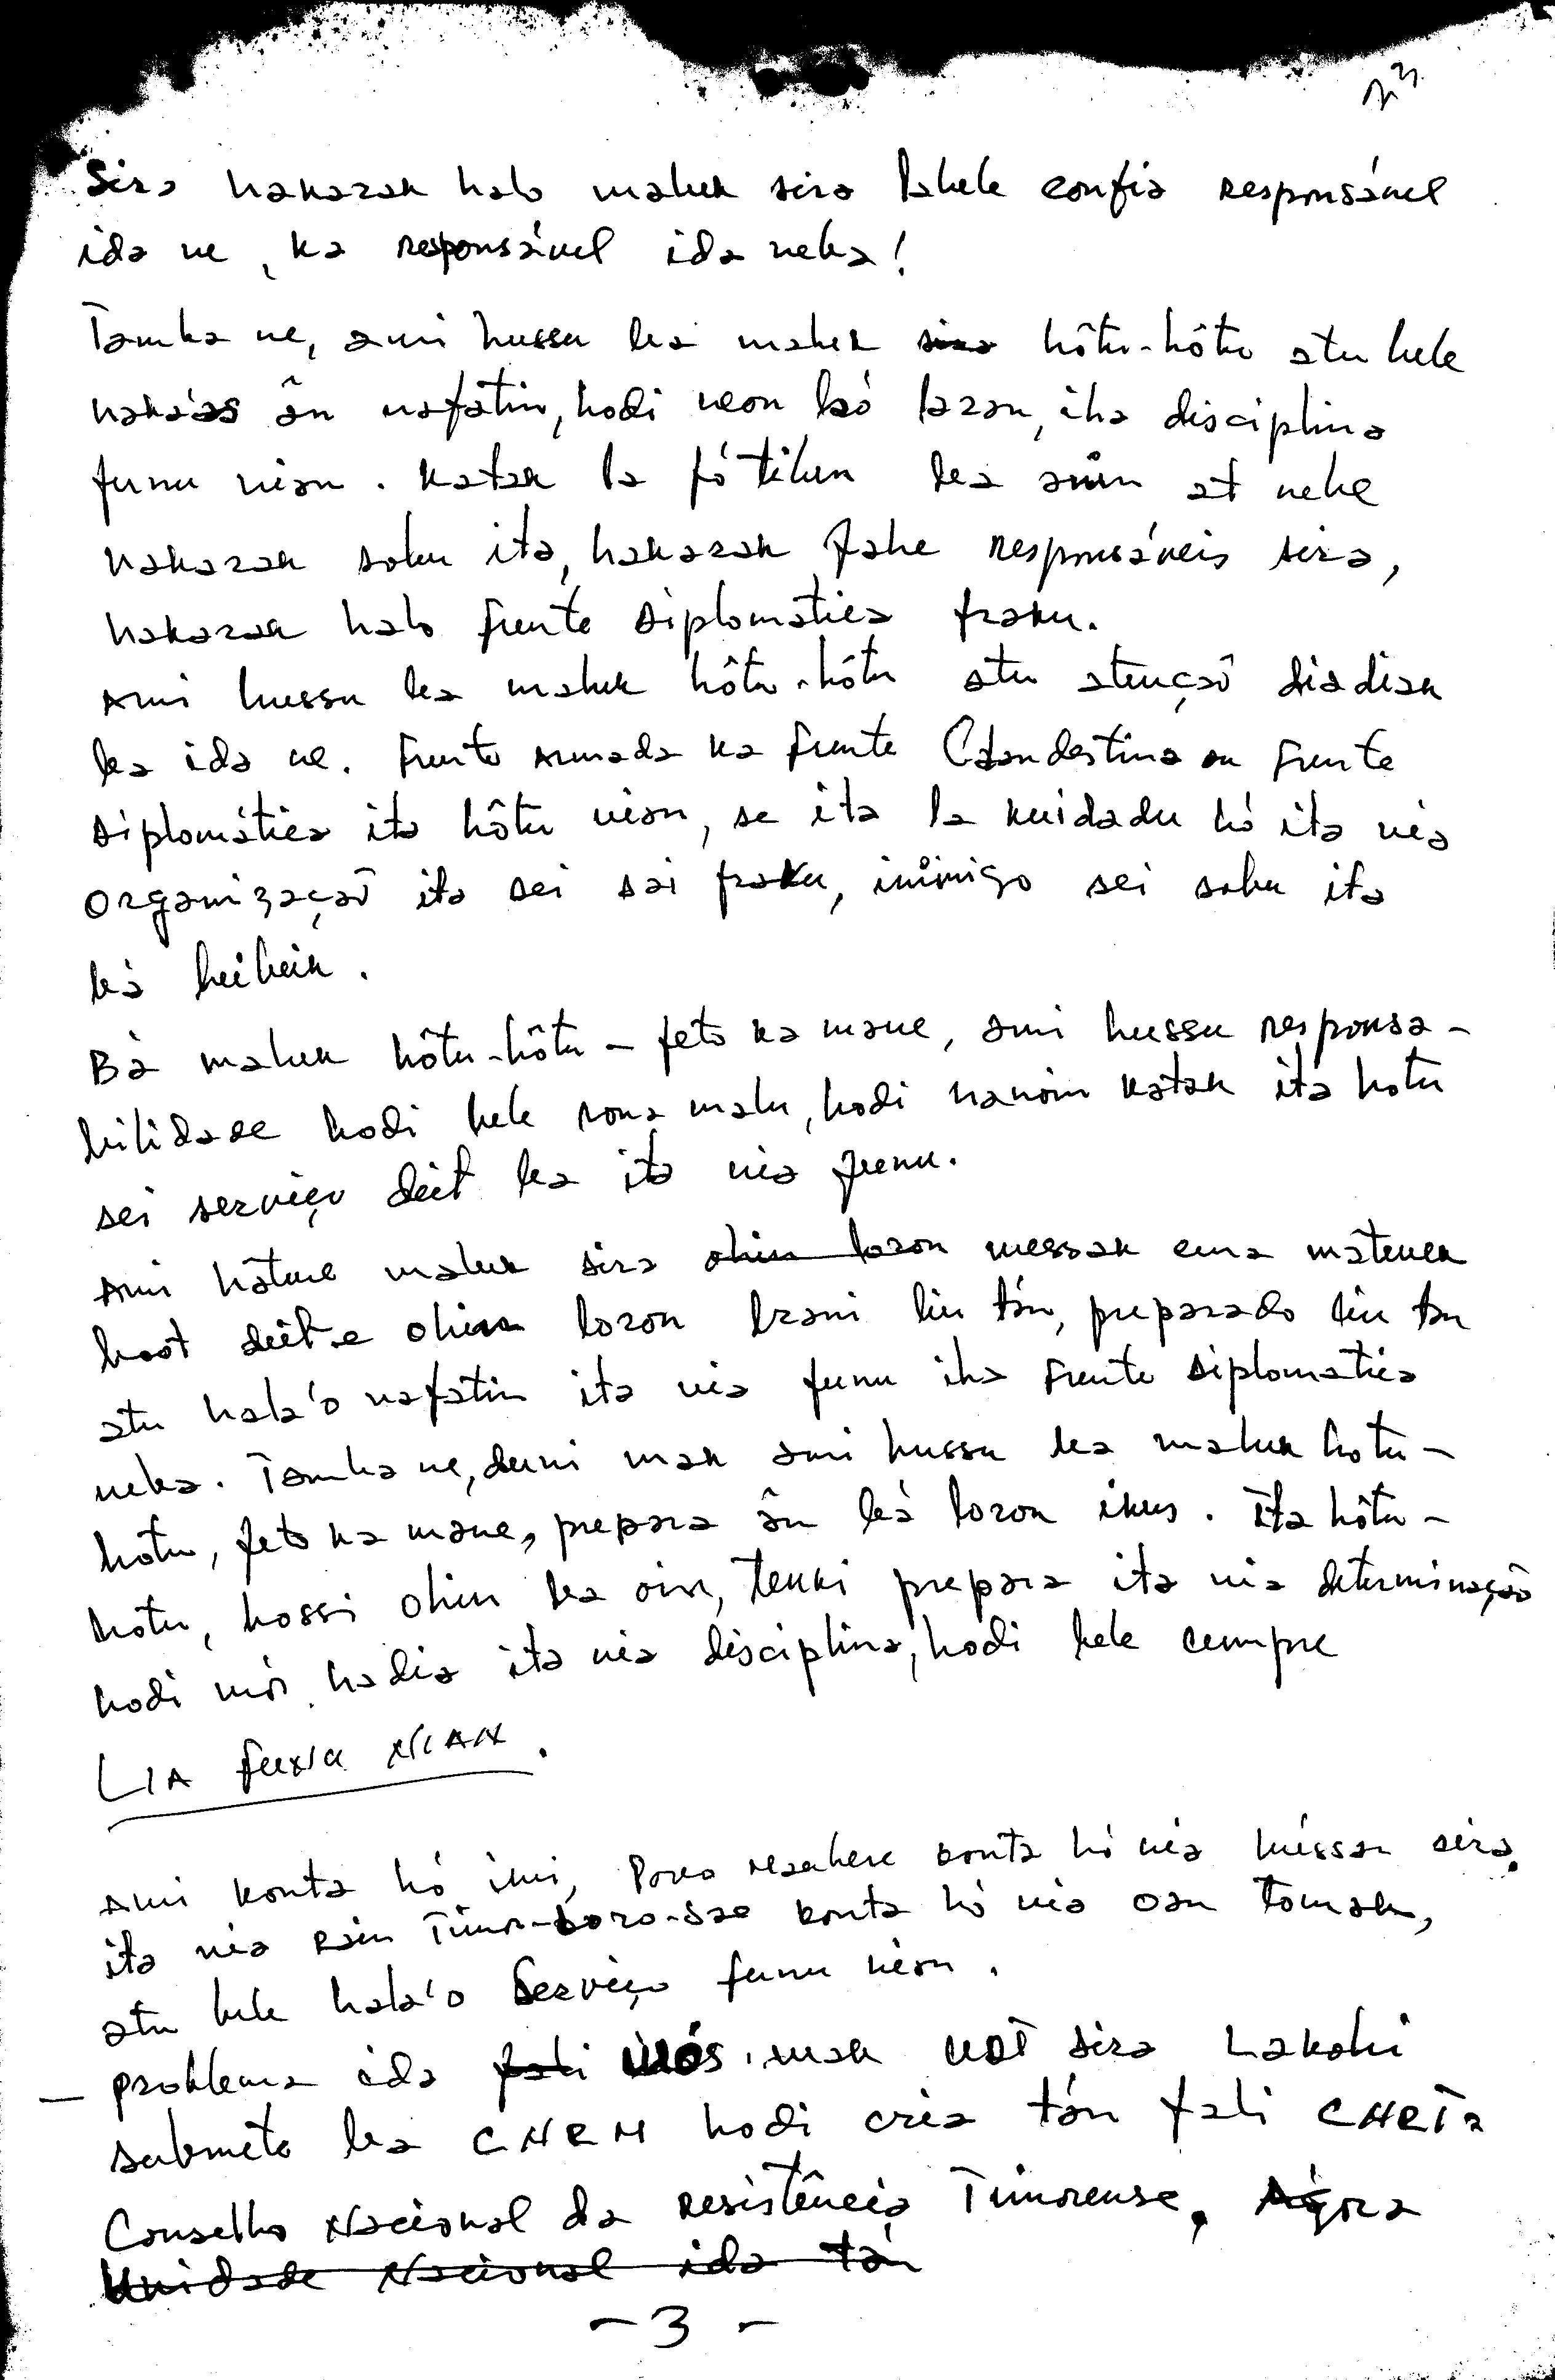 Sira hakarak halo maluk sira labele confia responsável
ida ne, ka responsável ida neba!
Tamba ne, ami hussu ba maluk sira hôtu-hôtu atu bele
haka'as ân nafatin, hodi neon hó laran, iha disciplina
funu nian. Katak la fó tilun ba ain at nebe
hakarak sobu ita, hakarak fahe responsáveis sira,
hakarak halo Frente Diplomatica fraku.
Ami hussu ba maluk hôtu-hôtu atu atençaõ diadiak
ba ida ne. Frente Armada ka Frente Clandestina ou Frente
Diplomática ita hôtu nian, se ita la kuidadu hó ita nia
organizaçaõ ita sei sai fraku, inimigo sei sobu ita
bá beibeik.
Bà maluk hôtu-hôtu - feto ka mane, ami hussu responsa-
bilidade hodi bele rona malu, hodi hanoin katak ita hotu
sei serviço deit ba ita nia funu.
Ami hatene maluk sira ohin loron messak ema matenek
boot deit e ohin loron brani liu tán, preparado liu tan
atu hala'o nafatin ita nia funu iha Frente Diplomatica
neba. Tamba ne, duni mak ami hussu ba maluk hotu-
hotu, feto ka mane, prepara ân bà loron ikus. Ita hôtu-
hotu, hossi ohin ba oin, tenki prepara ita nia determinação
hodi mós hadia ita nia disciplina, hodi bele cumpre
LIA FUNU NIAN.
Ami konta hó imi, Povo Maubere konta hó nia bissan sira,
ita nia Rain Timor-Loro-Sae konta hó nia oan tomak,
atu bele hala'o Serviço funu nian.
- problema ida fali mós, mak UDT sira Lakohi
submete ba CNRM hodi cria tán fali CNRTa
Conselho Nacional da Resistência Timorense, Agora
Unidade Nacional ida tán
- 3 -